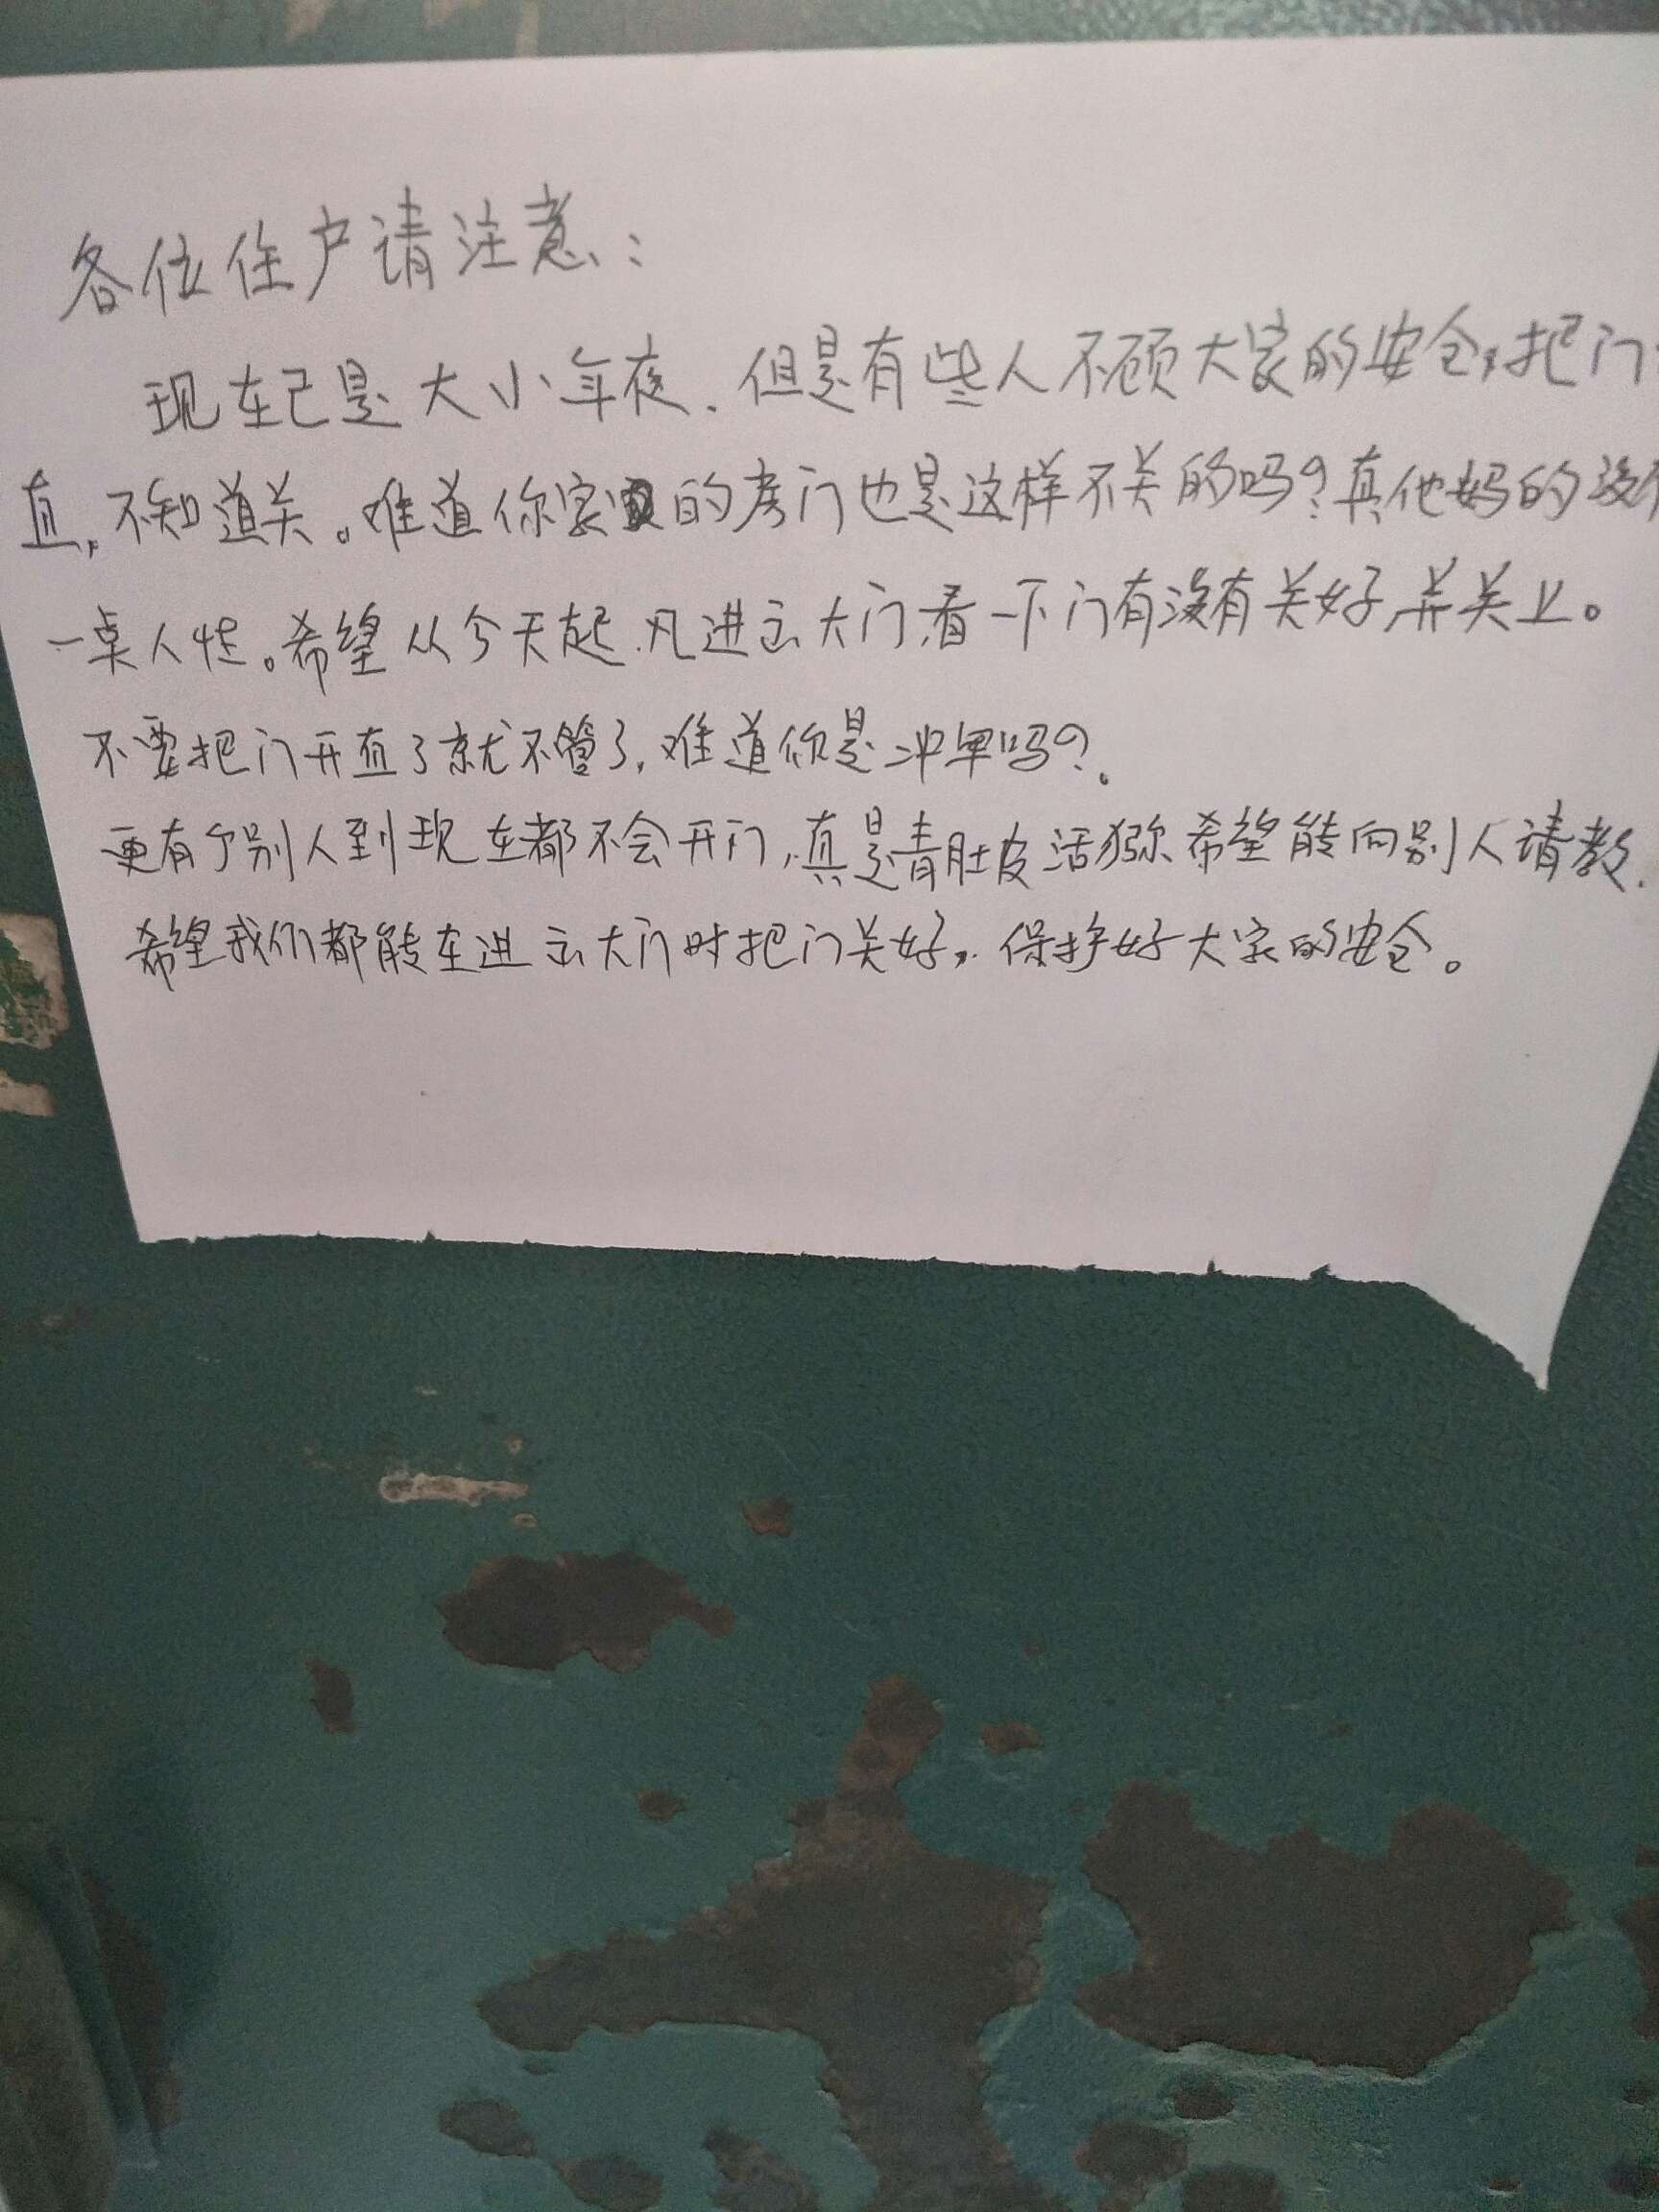 各位住户请注意：
现在已是大小年夜，但是有些人不顾大家的安全，把门
直，不知道关。难道你家的房门也是这样不关的吗？真他妈的没
一点人性。希望从今天起，凡进出大门，看一下门有没有关好，并关上。
不要把门开直了就不管了，难道你是冲军吗？。
更有个别人到现在都不会开门，真是青肚皮活猕希望能向别人请教.
希望我们都能在进出大门时把门关好，保护好大家的安全。